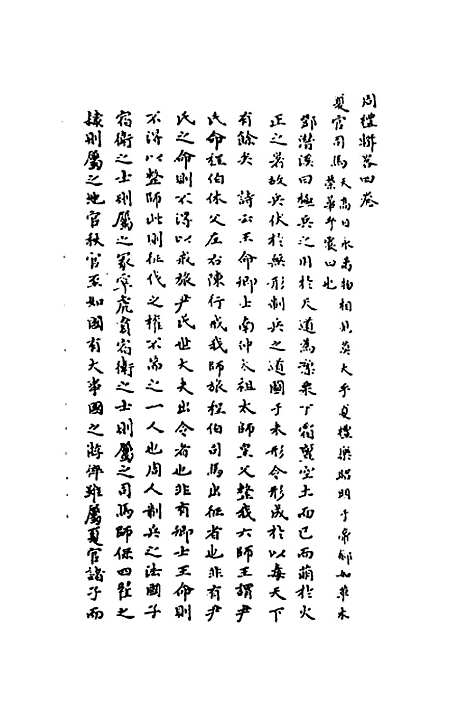 周禮辯畧四卷
夏官司馬 天高日永萬物相見莫大乎夏禮樂昭明于帝都如華木
榮華可裳曰也
鄧潛溪曰極兵之用於天道為 象 霜 空土而已而萌於火
正之署故兵伏於無形制兵之道圖于未形令形成於以毒天下
有餘矣 詩云王命卿士南仲太祖太師皇父整我六師王謂尹
氏命程伯休父左右陳行戒我師旅程伯司馬出征者也非有尹
氏之命則不得以戒旅尹氏世大夫出令者也非有卿士王命則
不得以整師此則征伐之權不為之一人也周人制兵之法國子
宿衛之士則屬之冢宰虎賁宿衛之士則屬之司馬師保四翟之
隸則屬之地官秋官至如國有大事國之游倅雖屬夏官諸子而